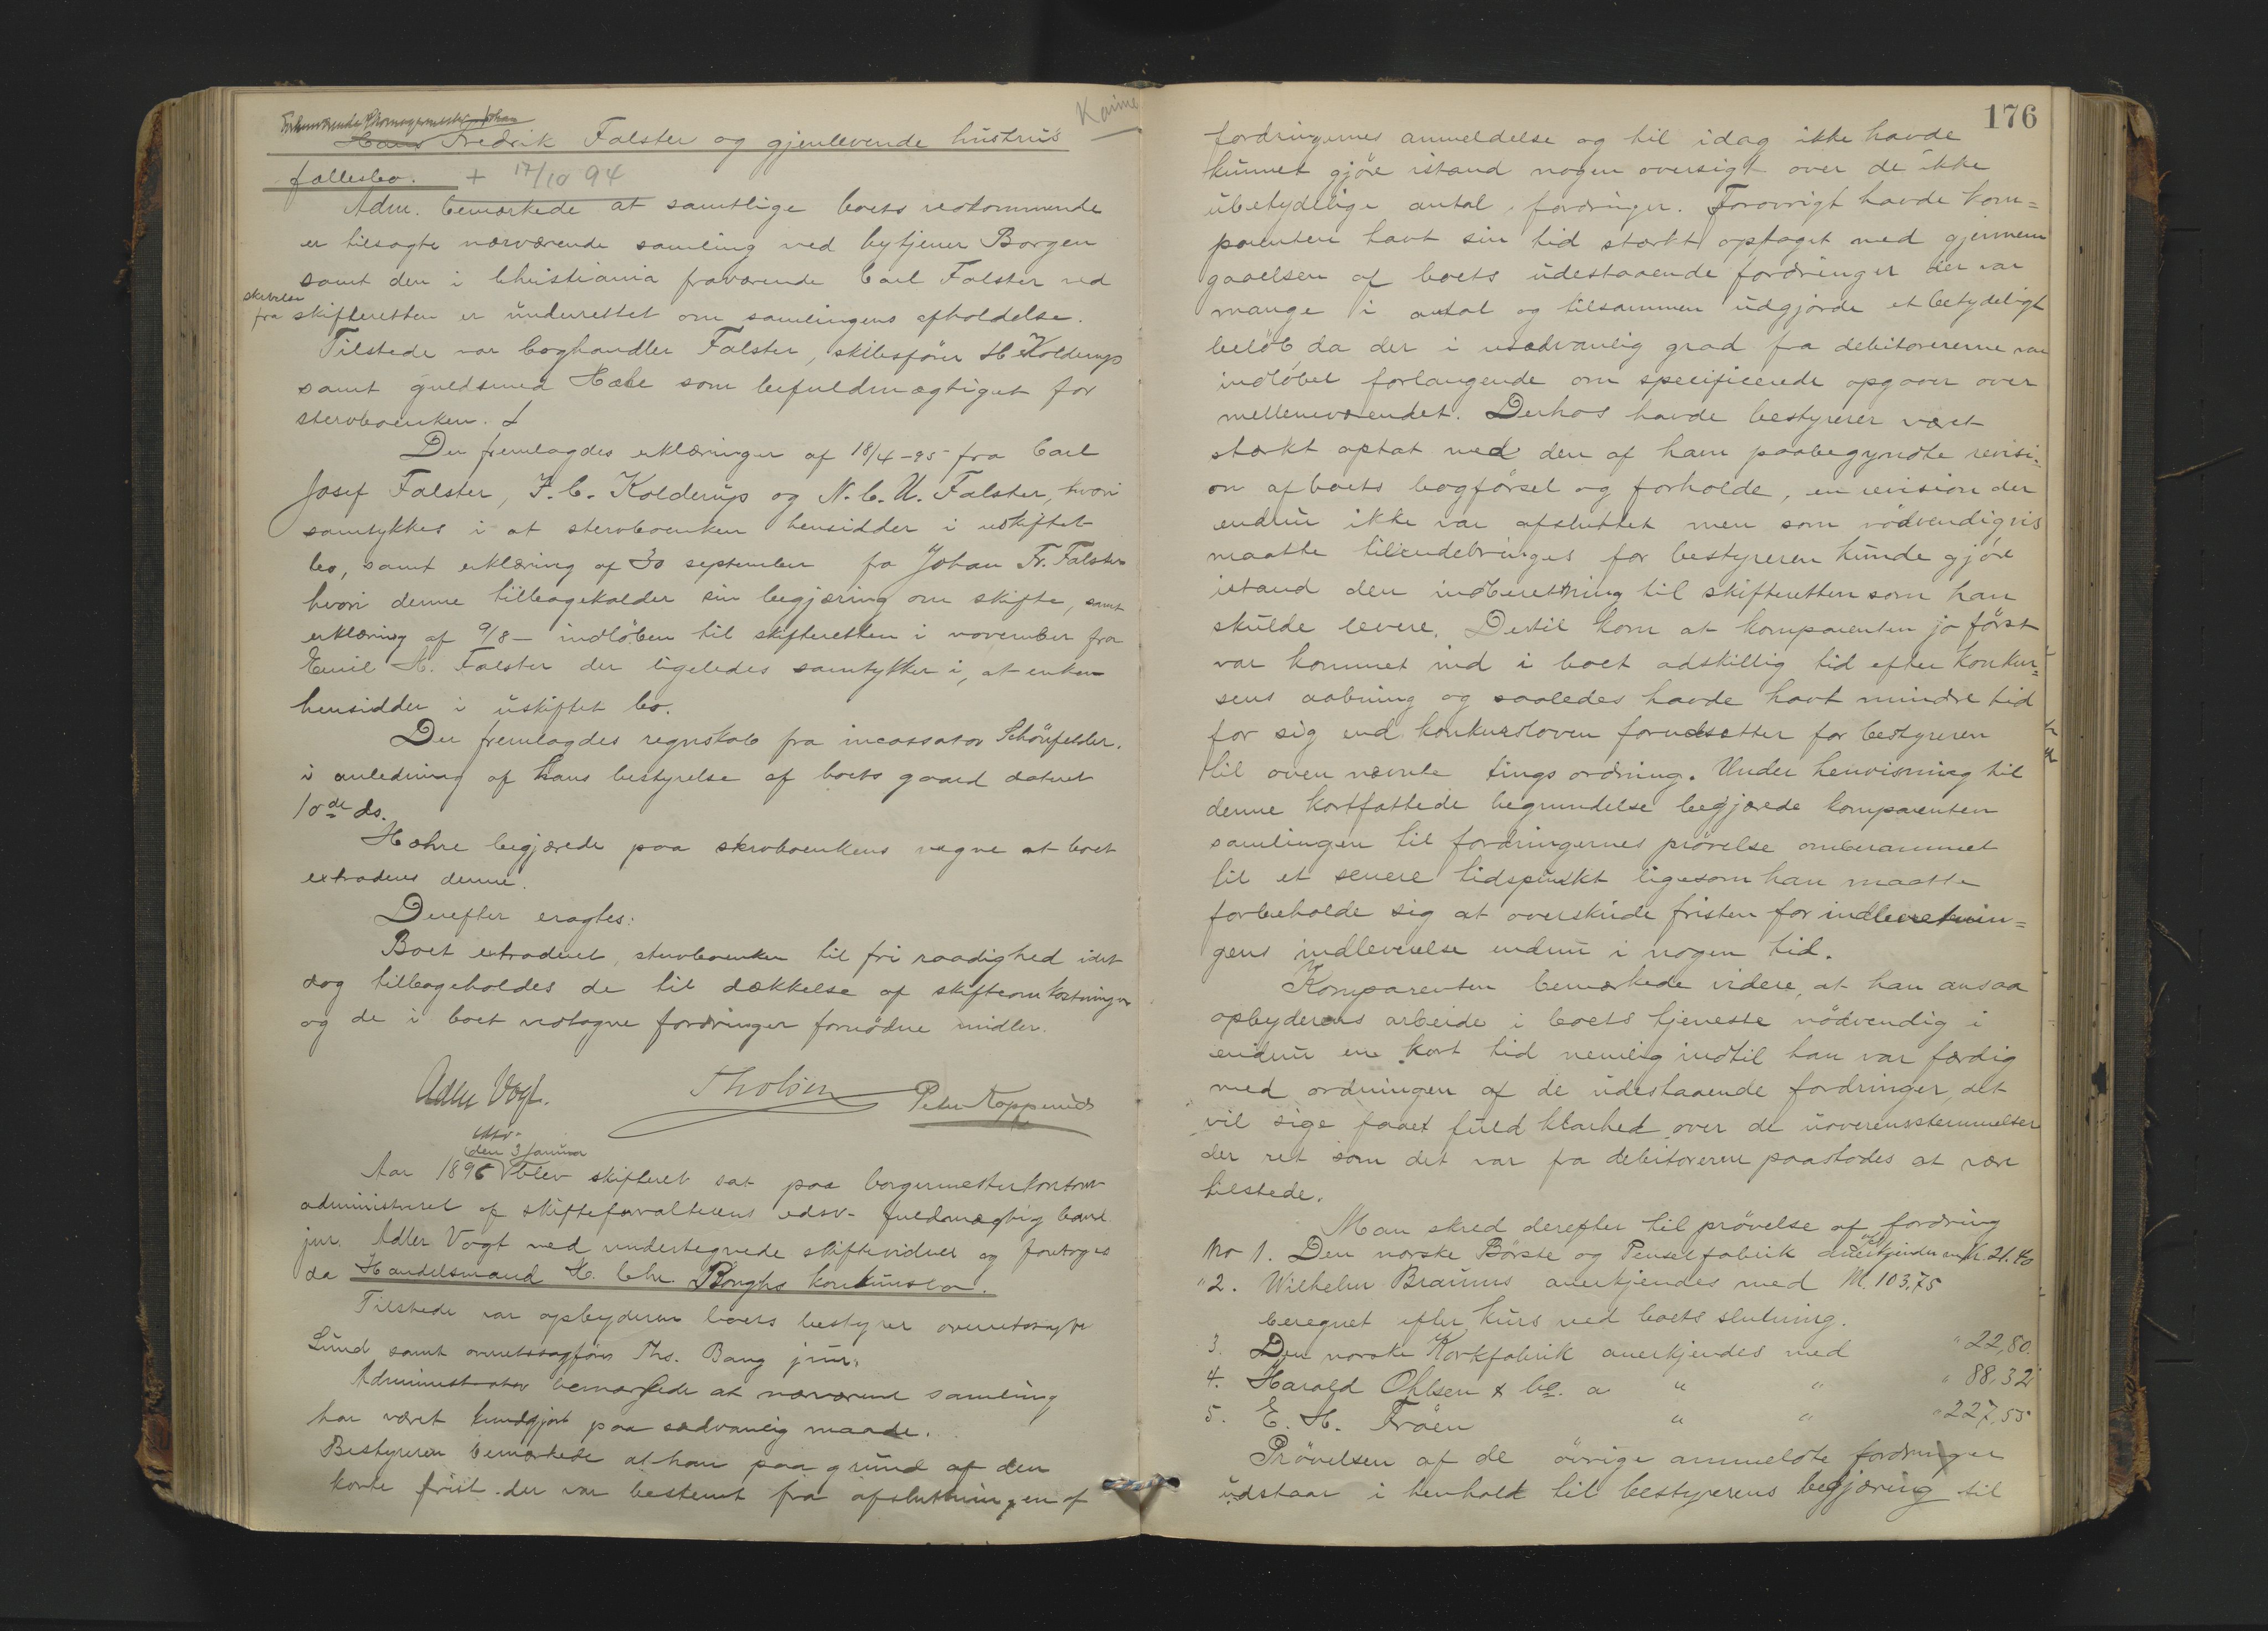 Kaime
Forhenværende Skomagermester Johan
Hans Fredrik Falster og gjenlevende hustrus
fællesbo. + 17/10 94
Adm. bemærkede at samtlige boets vedkommende
er tilsagte nærværende samling ved bytjener Borgen
samt den i Christiania fraværende Carl Falster ved
skrivelse
fra skifteretten er underrettet om samlingens afholdelse.
Tilstede var boghandler Falster, skibsfører H Kolderup
samt guldsmed Hæhre som befuldmægtiget for
sterboenken.
Der fremlagdes erklæringer af 18/4-95 fra Carl
Josef Falster, F. C. Kolderup og N. C. U. Falster, hvori
samtykkes i at sterboenken hensidder i uskiftet
bo, samt erklæring af 30 september fra Johan Fr. Falster
hvori denne tilbagekalder sin begjæring om skifte, samt
erklæring af 9/8 – indløben til skifteretten i november fra
Emil H. Falster der ligeledes samtykker i, at enken
hensidder i uskiftet bo.
Der fremlagdes regnskab fra incassator Schönfelder.
i anledning af hans bestyrelse af boets gaard datert
10de ds.
Hæhre begjærede paa sterboenkens vegne at boet
extraderes denne.
Derefter eragtes:
Boet extraderet sterboenken til fri raadighed idet
dog tilbageholdes de til dækkelse af skifteomkostninger
og de i boet vedtagne fordringer fornødne midler.
Adler Vogt. Tholsen Peder Kopperud
den 3 januar
Aar 1896 blev skifteret sat paa borgermesterkontoret
administreret af skifteforvalterens edsv. fuldmægtig cand.
jur. Adler Vogt ved undertegnede skiftevidner og foretoges
da Handelsmand H. Chr. Borghs konkursbo.
Tilstede var opbyderen boets bestyrer overretssagfør
Lund samt overretssagfører Ths. Bang jun.
Administrator bemærkede at nærværende samling
har været kundgjort paa sædvanlig maade.
Bestyreren bemærkede at han paa grund af den
korte frist der var bestemt fra afslutningen af
176
fordringernes anmeldelse og til idag ikke havde
kunnet gjøre istand nogen oversigt over de ikke
ubetydelige antal fordringer. Forøvrigt havde kom=
parenten havt sin tid stærkt optaget med gjennem
gaaelsen af boets udestaaende fordringer der var
mange i antal og tilsammen udgjorde et betydeligt
beløb da der i usædvanlig grad fra debitorererne var
indløbet forlangende om specificerede opgaver over
mellemværendet. Derhos havde bestyrerer været
stærkt optat med den af ham paabegyndte revisi-
on af boets bogførsel og forholde, en revision der
endnu ikke var afsluttet men som nødvendigvis
maatte tilendebringes før bestyreren kunde gjøre
istand den indberetning til skifteretten som han
skulde levere. Dertil kom at komparenten jo først
var kommet ind i boet adskillig tid efter konkur=
sens aabning og saaledes havde havt mindre tid
for sig end konkursloven forudsætter for bestyreren
til oven nævnte tings ordning. Under henvisning til
denne kortfattede begrundelse begjærede komparenten
samlingen til fordringernes prøvelse omberammet
til et senere tidspunkt ligesom han maatte
forbeholde sig at overskride fristen for indberetnin=
gens indleverelse endnu i nogen tid.
Komparenten bemærkede videre, at han ansaa
opbyderens arbeide i boets tjeneste nødvendig i
endnu en kort tid nemlig indtil han var færdig
med ordningen af de udestaaende fordringer, det
vil sige faaet fuld klarhed over de uoverensstemmelser
der ret som det var fra debitorerne paastodes at være
tilstede.
Man skred derefter til prøvelse af fordring
No 1. Den norske Børste og Penselfabrik anerkjendes m Kr. 21.40
" 2. Wilhelm Brauns anerkjendes med M. 103.75
beregnet efter kurs ved boets slutning.
3. Den norske Korkfabrik anerkjendes med " 22,80.
4. Harald Ohlsen & Co. a " " " 88,32
5. E. H. Frøen " " " 227,55
Prøvelsen af de øvrige anmeldte fordringer
udstaar i henhold til bestyrerens begjæring til